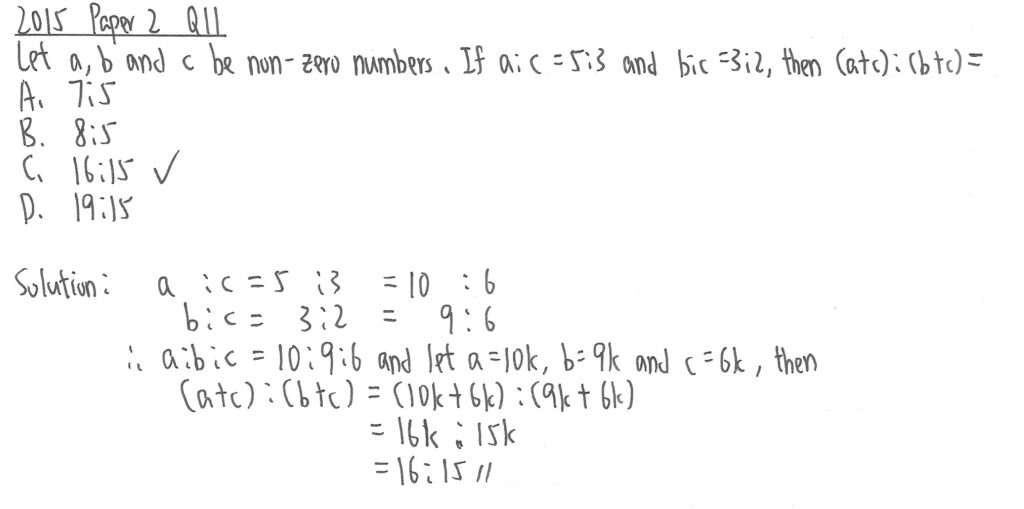 2015 Paper 2 Q11
Let a, b and c be non-zero numbers. If a:c = 5:3 and b:c = 3:2, then (a+c):(b+c) =
A. 7:5
B. 8:5
C. 16:15 ✓
D. 19:15
Solution: a :c = 5 :3 = 10 :6
b:c = 3:2 = 9:6
∴ a:b:c = 10:9:6 and let a=10k, b=9k and c=6k, then
(a+c):(b+c) = (10k+6k):(9k+6k)
= 16k : 15k
= 16:15 //